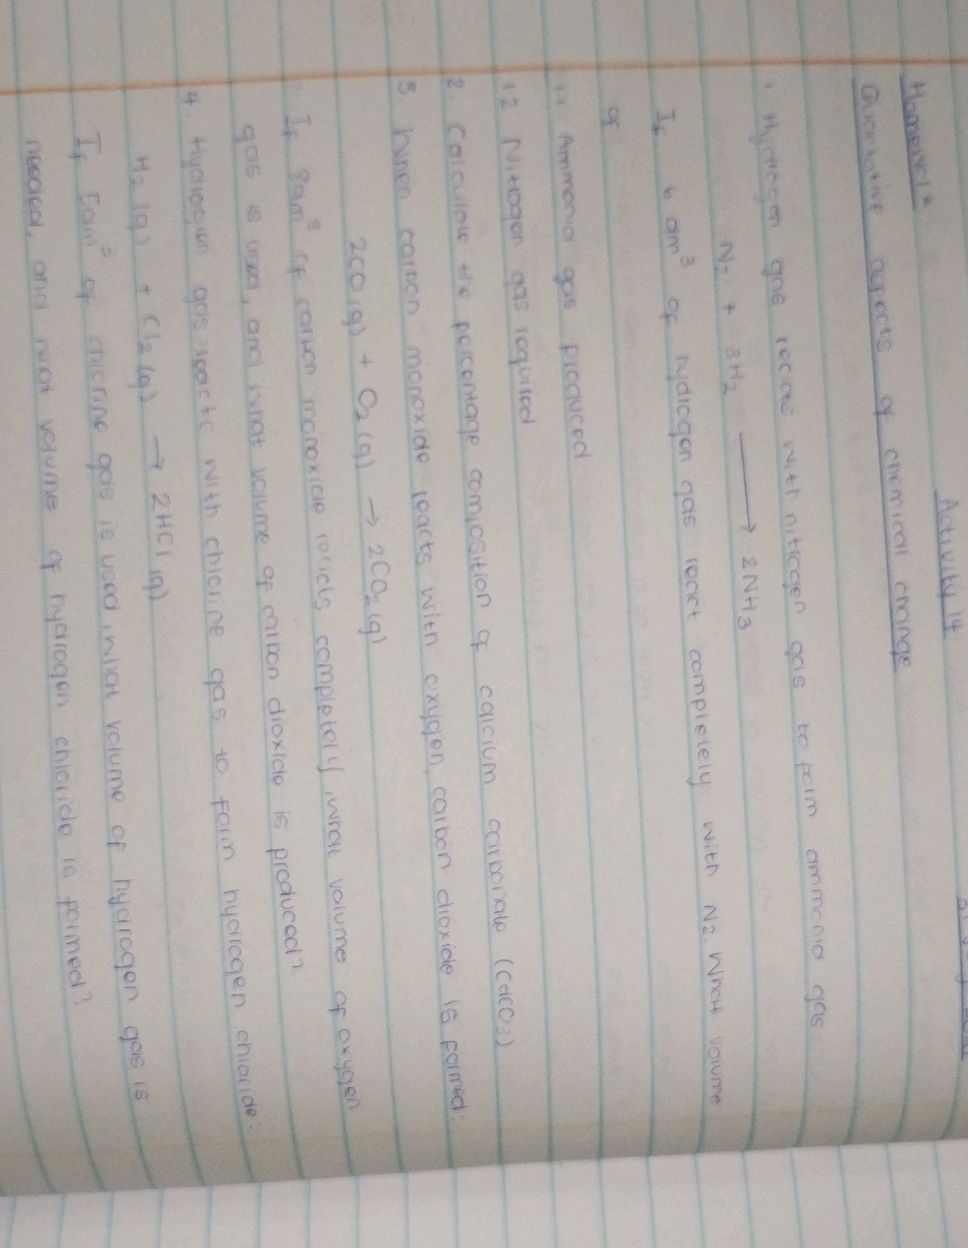 Activity 14
Homework
Quantitative aspects of chemical change
1 Hydrogen gas reacts with nitrogen gas to form ammonia gas.
N2 + 3H2 ⟶ 2NH3
If 6 dm³ of hydrogen gas react completely with N2. What volume
of
1.1 Ammonia gas produced
1.2 Nitrogen gas required
2 Calculate the percentage composition of calcium carbonate (CaCO3)
3 When carbon monoxide reacts with oxygen, carbon dioxide is formed:
2CO(g) + O2(g) → 2CO2(g)
If 8dm³ of carbon monoxide reacts completely, what volume of oxygen
gas is used, and what volume of carbon dioxide is produced?
4 Hydrogen gas reacts with chlorine gas to form hydrogen chloride:
H2(g) + Cl2(g) → 2HCl(g)
If 5dm³ of chlorine gas is used, what volume of hydrogen gas is
needed, and what volume of hydrogen chloride is formed?